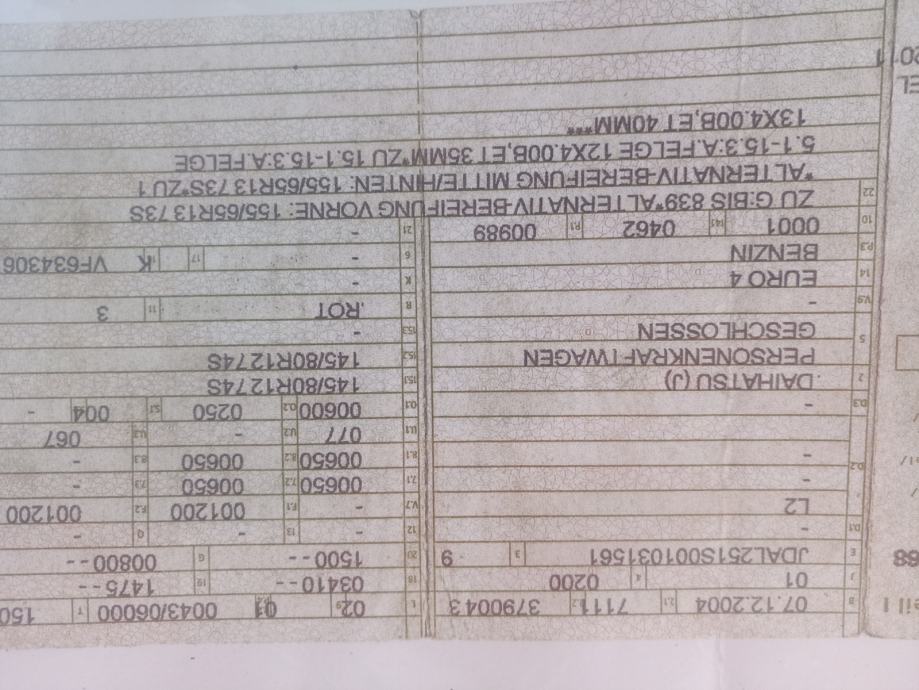 Teil I
B 07.12.2004 2.1 7111 2.2 3790043
J 01 4 0200
E JDAL251S001031561 3 9
D.1 -
L2
D.2 -
-
D.3 -
2 .DAIHATSU (J)
5 PERSONENKRAFTWAGEN
GESCHLOSSEN
V.9 -
14 EURO 4
P.3 BENZIN
10 0001 14.1 0462 P.1 00989
L 02 9 01 0043/06000 T 150
18 03410-- 19 1475--
20 1500-- G 00800--
12 - 13 - Q -
V.7 - F.1 001200 F.2 001200
7.1 00650 7.2 00650 7.3 -
8.1 00650 8.2 00650 8.3 -
U.1 077 U.2 - U.3 067
O.1 00600 O.2 0250 S.1 004 -
15.1 145/80R1274S
15.2 145/80R1274S
15.3 -
R .ROT 11 3
K -
6 - 17 K VF634306
21 -
22 ZU G:BIS 839*ALTERNATIV-BEREIFUNG VORNE: 155/65R13 73S
*ALTERNATIV-BEREIFUNG MITTE/HINTEN: 155/65R13 73S*ZU 1
5.1-15.3:A.FELGE 12X4.00B,ET 35MM*ZU 15.1-15.3:A.FELGE
13X4.00B,ET 40MM***